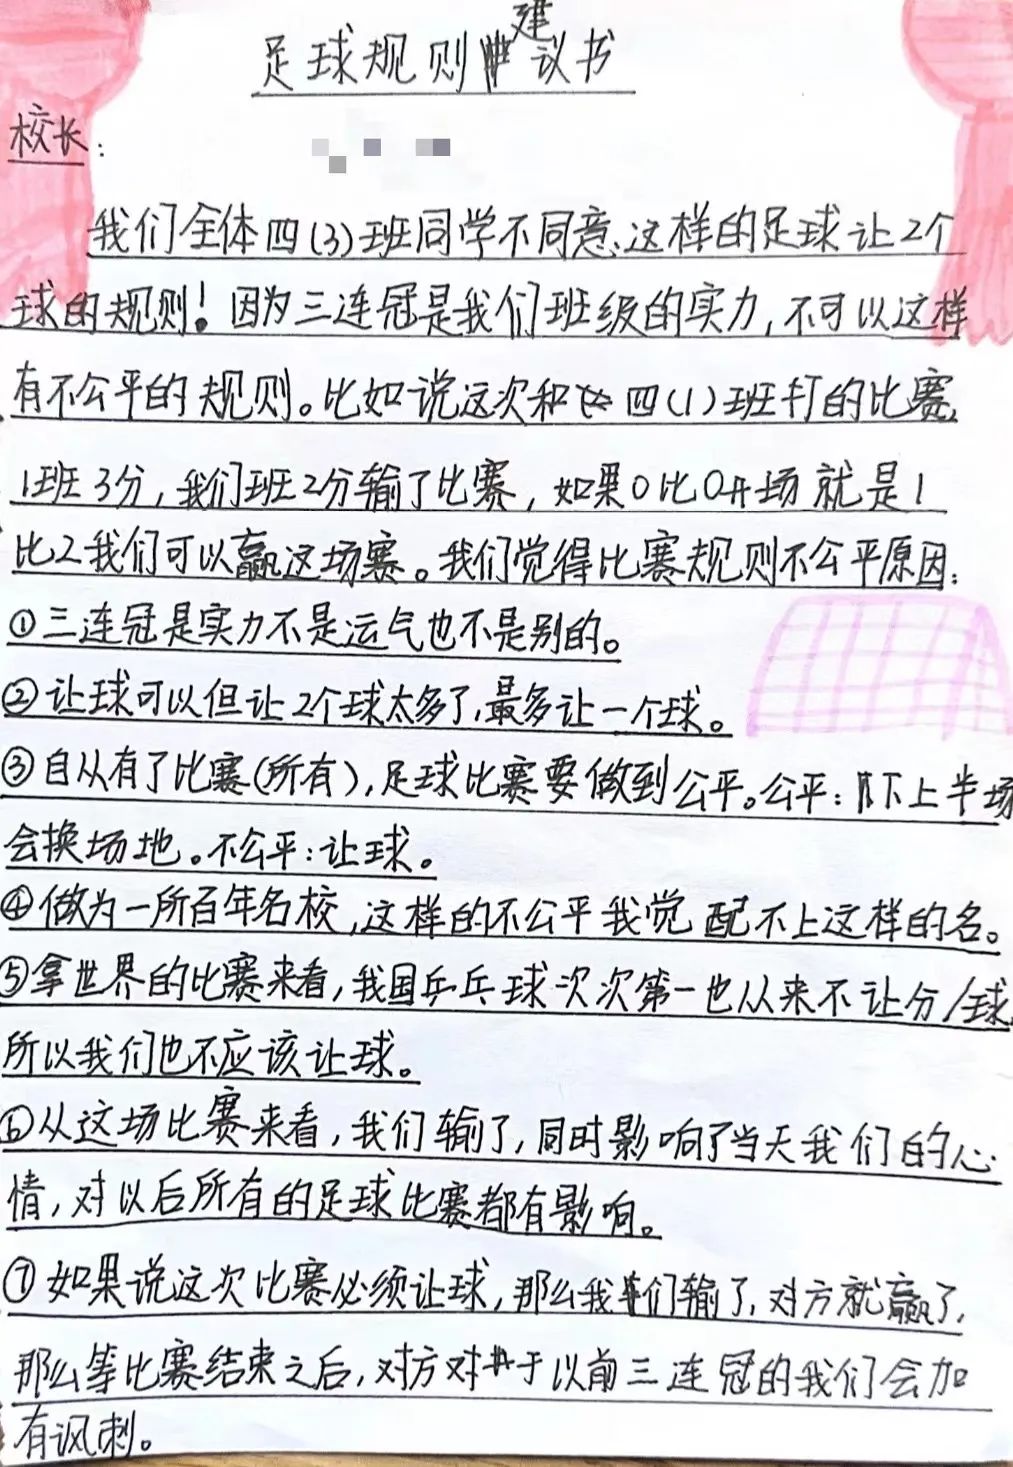 足球规则建议书
校长:
我们全体四(3)班同学不同意这样的足球让2个
球的规则!因为三连冠是我们班级的实力,不可以这样
有不公平的规则。比如说这次和四(1)班打的比赛,
1班3分,我们班2分输了比赛,如果0比0开场就是1
比2我们可以赢这场赛。我们觉得比赛规则不公平原因:
①三连冠是实力不是运气也不是别的。
②让球可以但让2个球太多了,最多让一个球。
③自从有了比赛(所有),足球比赛要做到公平。公平:下上半场
会换场地。不公平:让球。
④做为一所百年名校,这样的不公平我觉配不上这样的名。
⑤拿世界的比赛来看,我国乒乓球次次第一也从来不让分/球,
所以我们也不应该让球。
⑥从这场比赛来看,我们输了,同时影响了当天我们的心
情,对以后所有的足球比赛都有影响。
⑦如果说这次比赛必须让球,那么我们输了,对方就赢了,
那么等比赛结束之后,对方对于以前三连冠的我们会加
有讽刺。